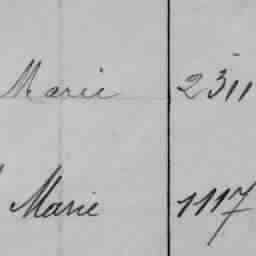 Marie 2311
Marie 1117